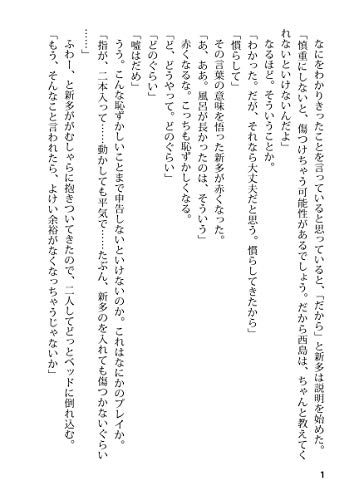 なにをわかりきったことを言っていると思っていると、「だから」と新多は説明を始めた。
「慎重にしないと、傷つけちゃう可能性があるでしょう。だから西島は、ちゃんと教えてく
れないといけないんだよ」
なるほど。そういうことか。
「わかった。だが、それなら大丈夫だと思う。慣らしてきたから」
「慣らして」
その言葉の意味を悟った新多が赤くなった。
「あ、ああ。風呂が長かったのは、そういう」
赤くなるな。こっちも恥ずかしくなる。
「ど、どうやって。どのぐらい」
「どのぐらい」
「嘘はだめ」
うう。こんな恥ずかしいことまで申告しないといけないのか。これはなにかのプレイか。
「指が、二本入って……動かしても平気で……たぶん、新多のを入れても傷つかないぐらい
……」
ふわー、と新多ががむしゃらに抱きついてきたので、二人してどっとベッドに倒れ込む。
「もう、そんなこと言われたら、よけい余裕がなくなっちゃうじゃないか」
1